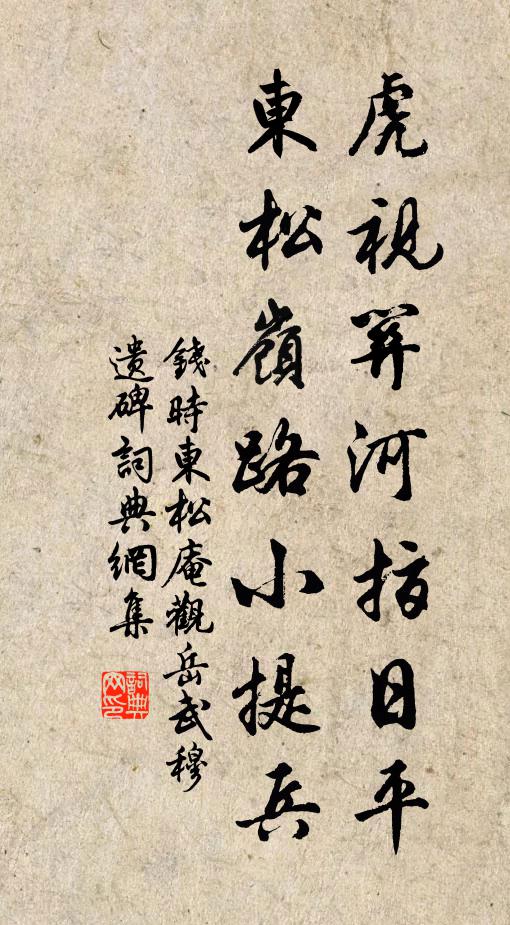 虎視關河指日平
東松嶺路小提兵
錢時東松庵觀岳武穆
遺碑詞典網集
詞典
網印